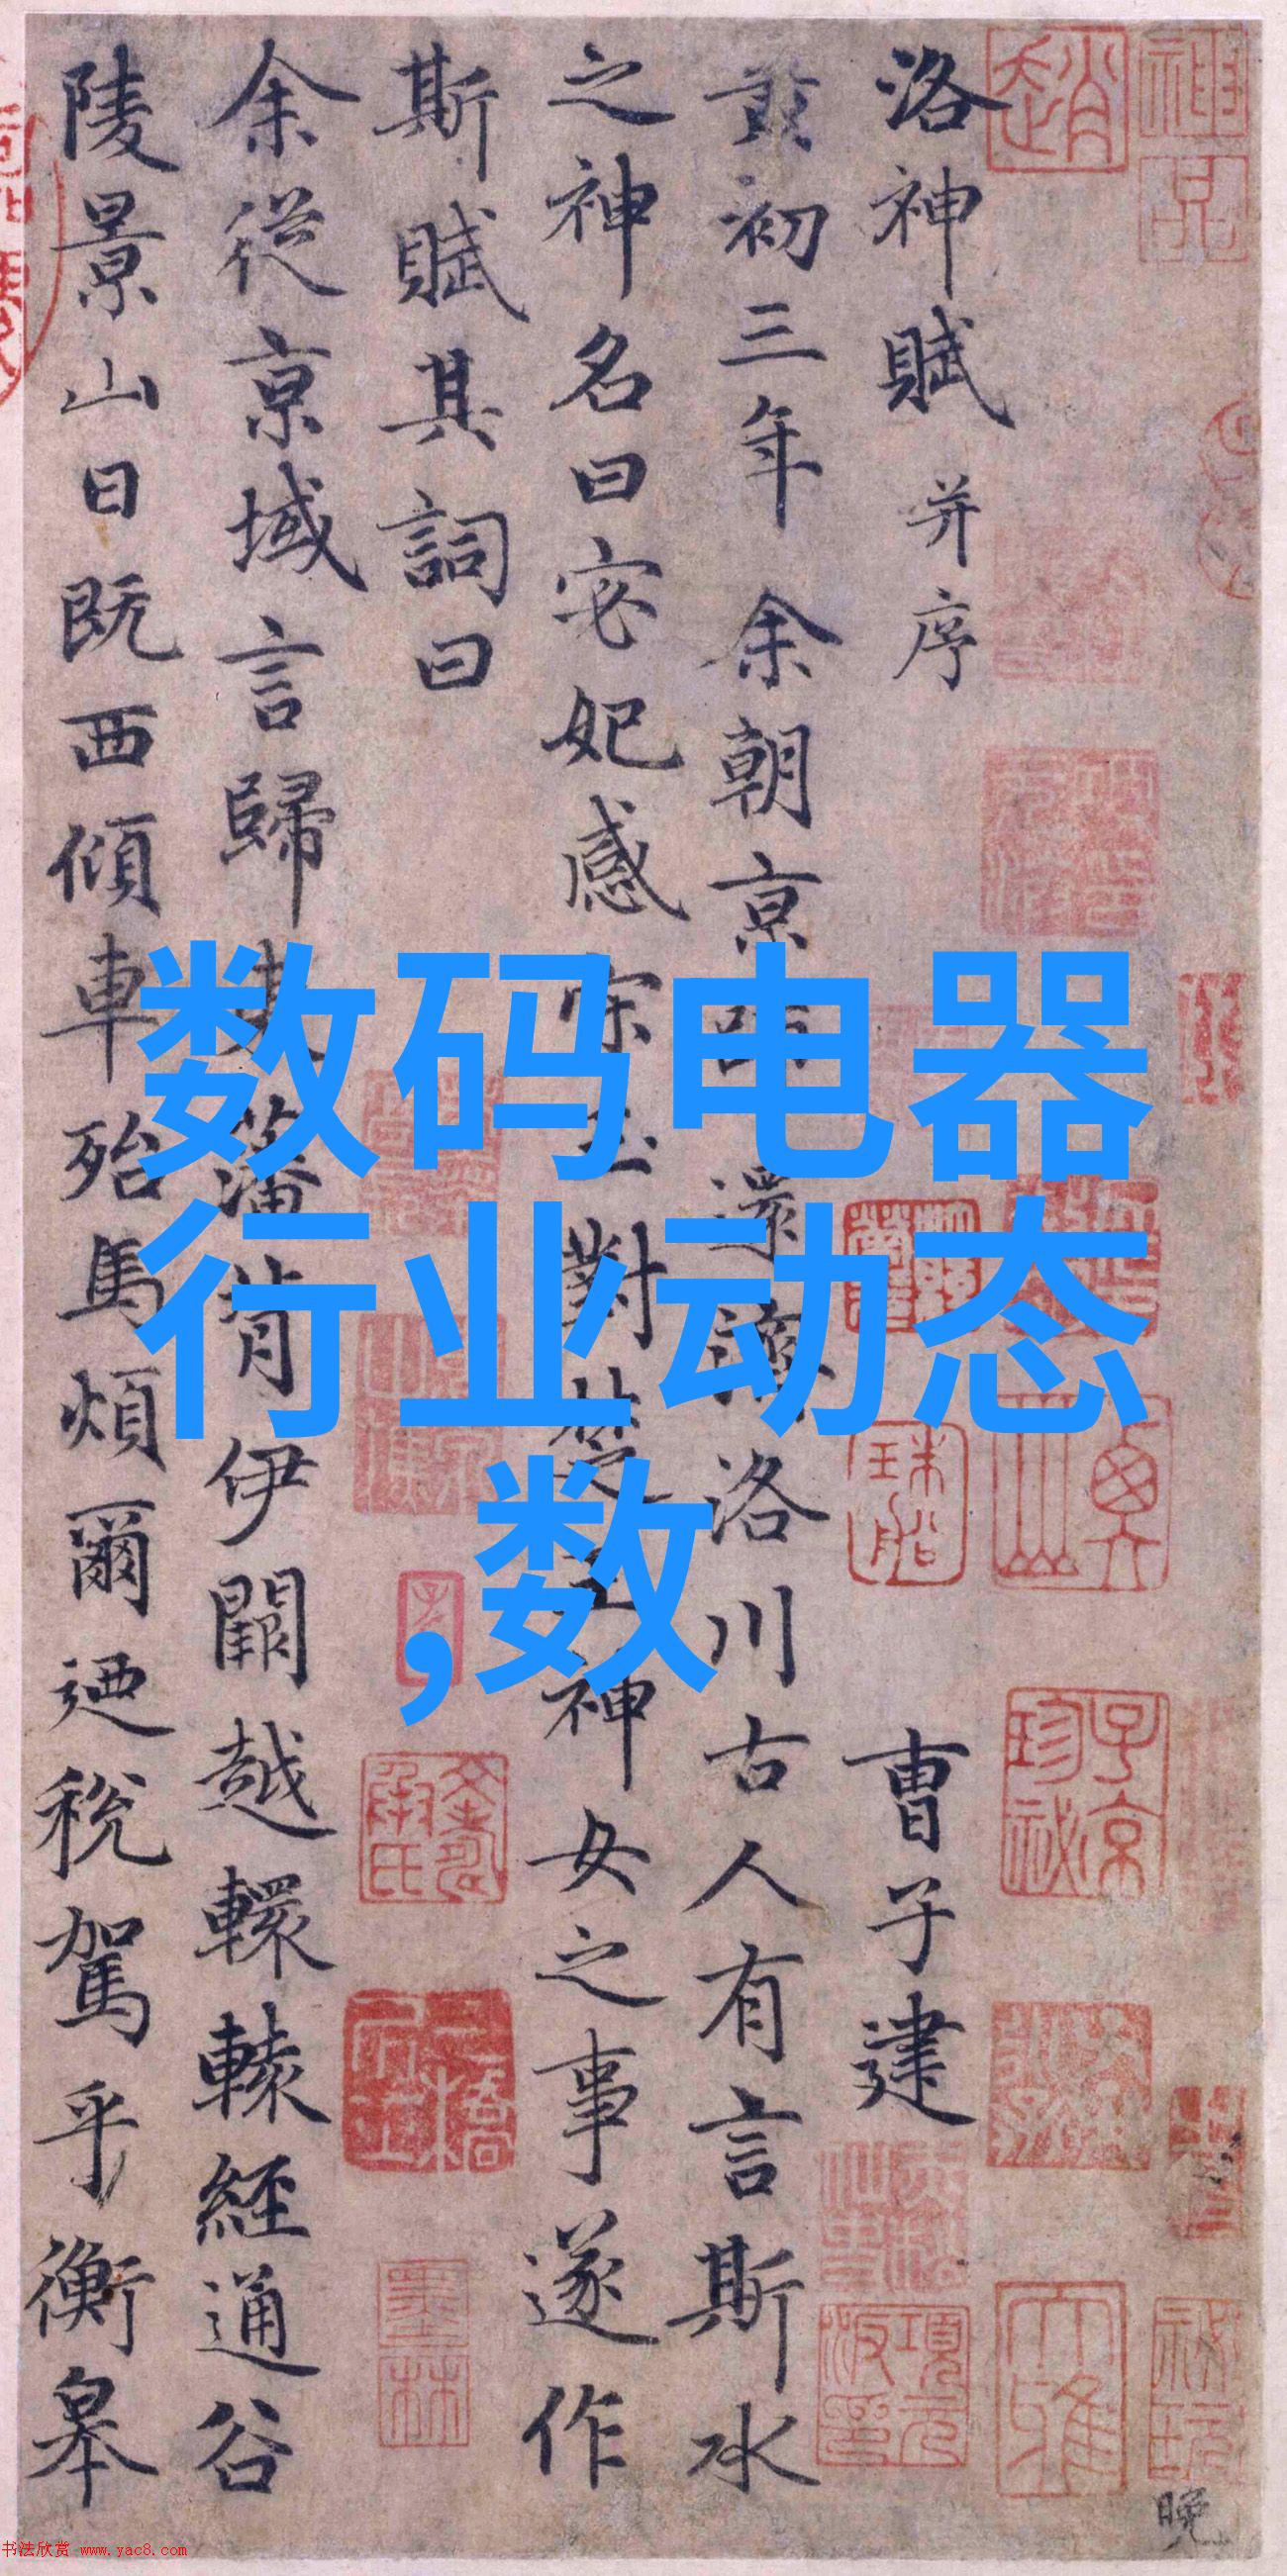 洛神賦 并序 曹子建
黄初三年余朝京師還濟洛川古人有言斯水
之神名曰宓妃感宋玉對楚王神女之事遂作
斯賦其詞曰
余從京域言歸東藩背伊闕越轘轅經通谷
陵景山日既西傾車殆馬煩爾迺稅駕乎衡皋
数码电器
行业动态
,数
趙
子京
珍祕
項元
汴印
墨林
大雅
晚
书法欣赏 www.yac8.com